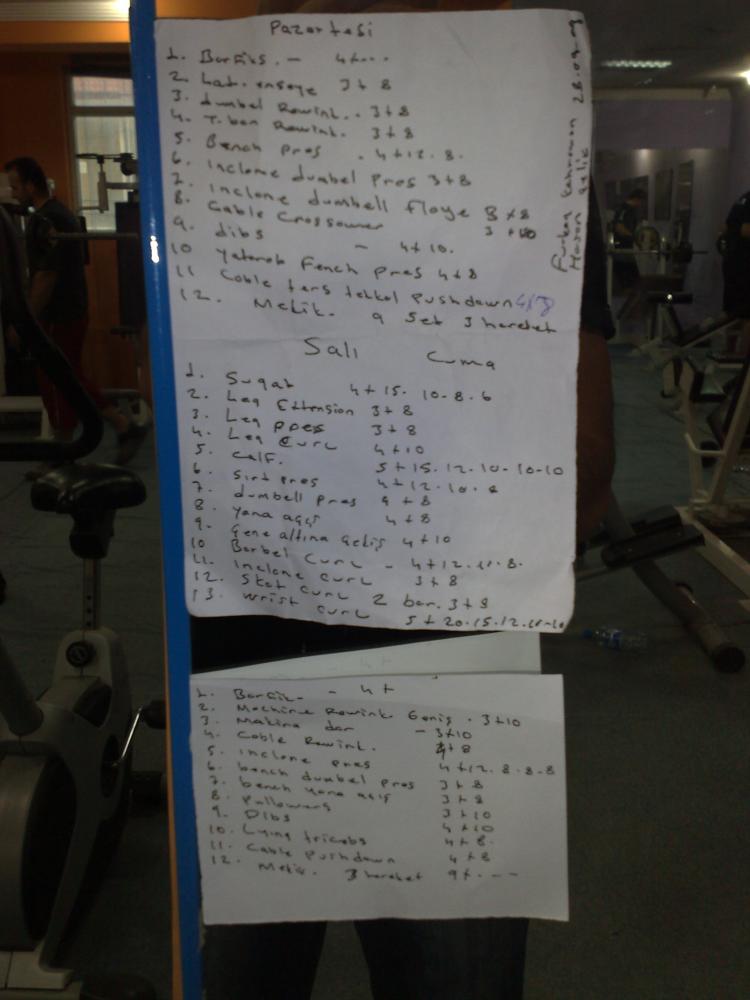 Pazartesi
1. Barfiks. - 4+....
2. Lat. enseye 3+8
3. dumbel Rewink.. 3+8
4. T. bar Rewink. 3+8
5. Bench pres . 4+12.8.
6. Inclome dumbel Pres 3+8
7. Inclone dumbell flaye 3+8
8. Cable Crossower 3+10
9. dibs - 4+10.
10 Fench pres 4+8
11 Cable ters tekkol pushdawn 4+8
12. Mekik. 9 Set 3 hareket
28.09.09
Furkan Kahraman
Hasan Çelik
Salı Cuma
1. Suqat 4+15.10-8-6
2. Leg Extension 3+8
3. Leg pres 3+8
4. Leg Curl 4+10
5. Calf. 5+15.12.10-10-10
6. Sırt pres 4+12.10.8
7. dumbell pres 4+8
8. yana açış 4+8
9. Çene altına çekiş 4+10
10 Barbel Curl - 4+12.10.8.
11. Inclone curl 3+8
12. Skot curl 2 bar. 3+8
13. wrist curl 5+20.15.12.10-10
1. Barfik- - 4+
2. Machine Rewink Geniş . 3+10
3. Makina dar - 3+10
4. Cable Rewink. 4+8
5. Inclone pres 4+12.8.8-8
6. bench dumbel pres 3+8
7. bench yana açış 3+8
8. Pullowers 3+10
9. Dibs 4+10
10. Lying tricebs 4+8.
11. Cable Pushdawn 4+8
12. Mekik. 3 hareket 9+.---